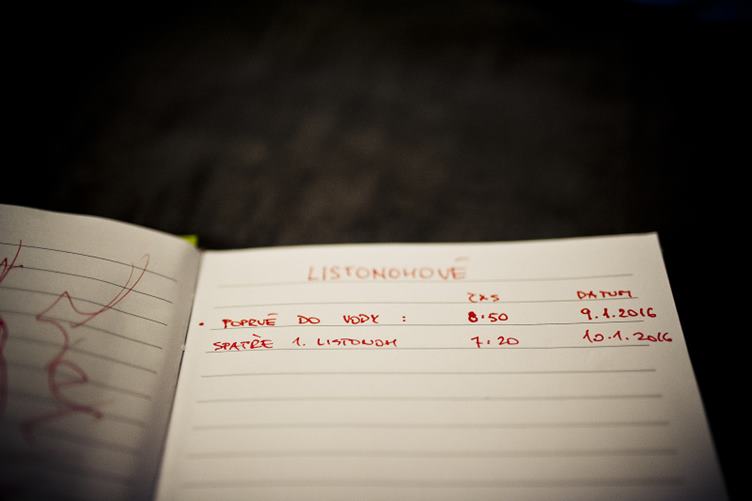 LISTONOHOVÉ
ČAS DATUM
• POPRVÉ DO VODY : 8:50 9.1.2016
SPATŘE 1. LISTONOH 7:20 10.1.2016